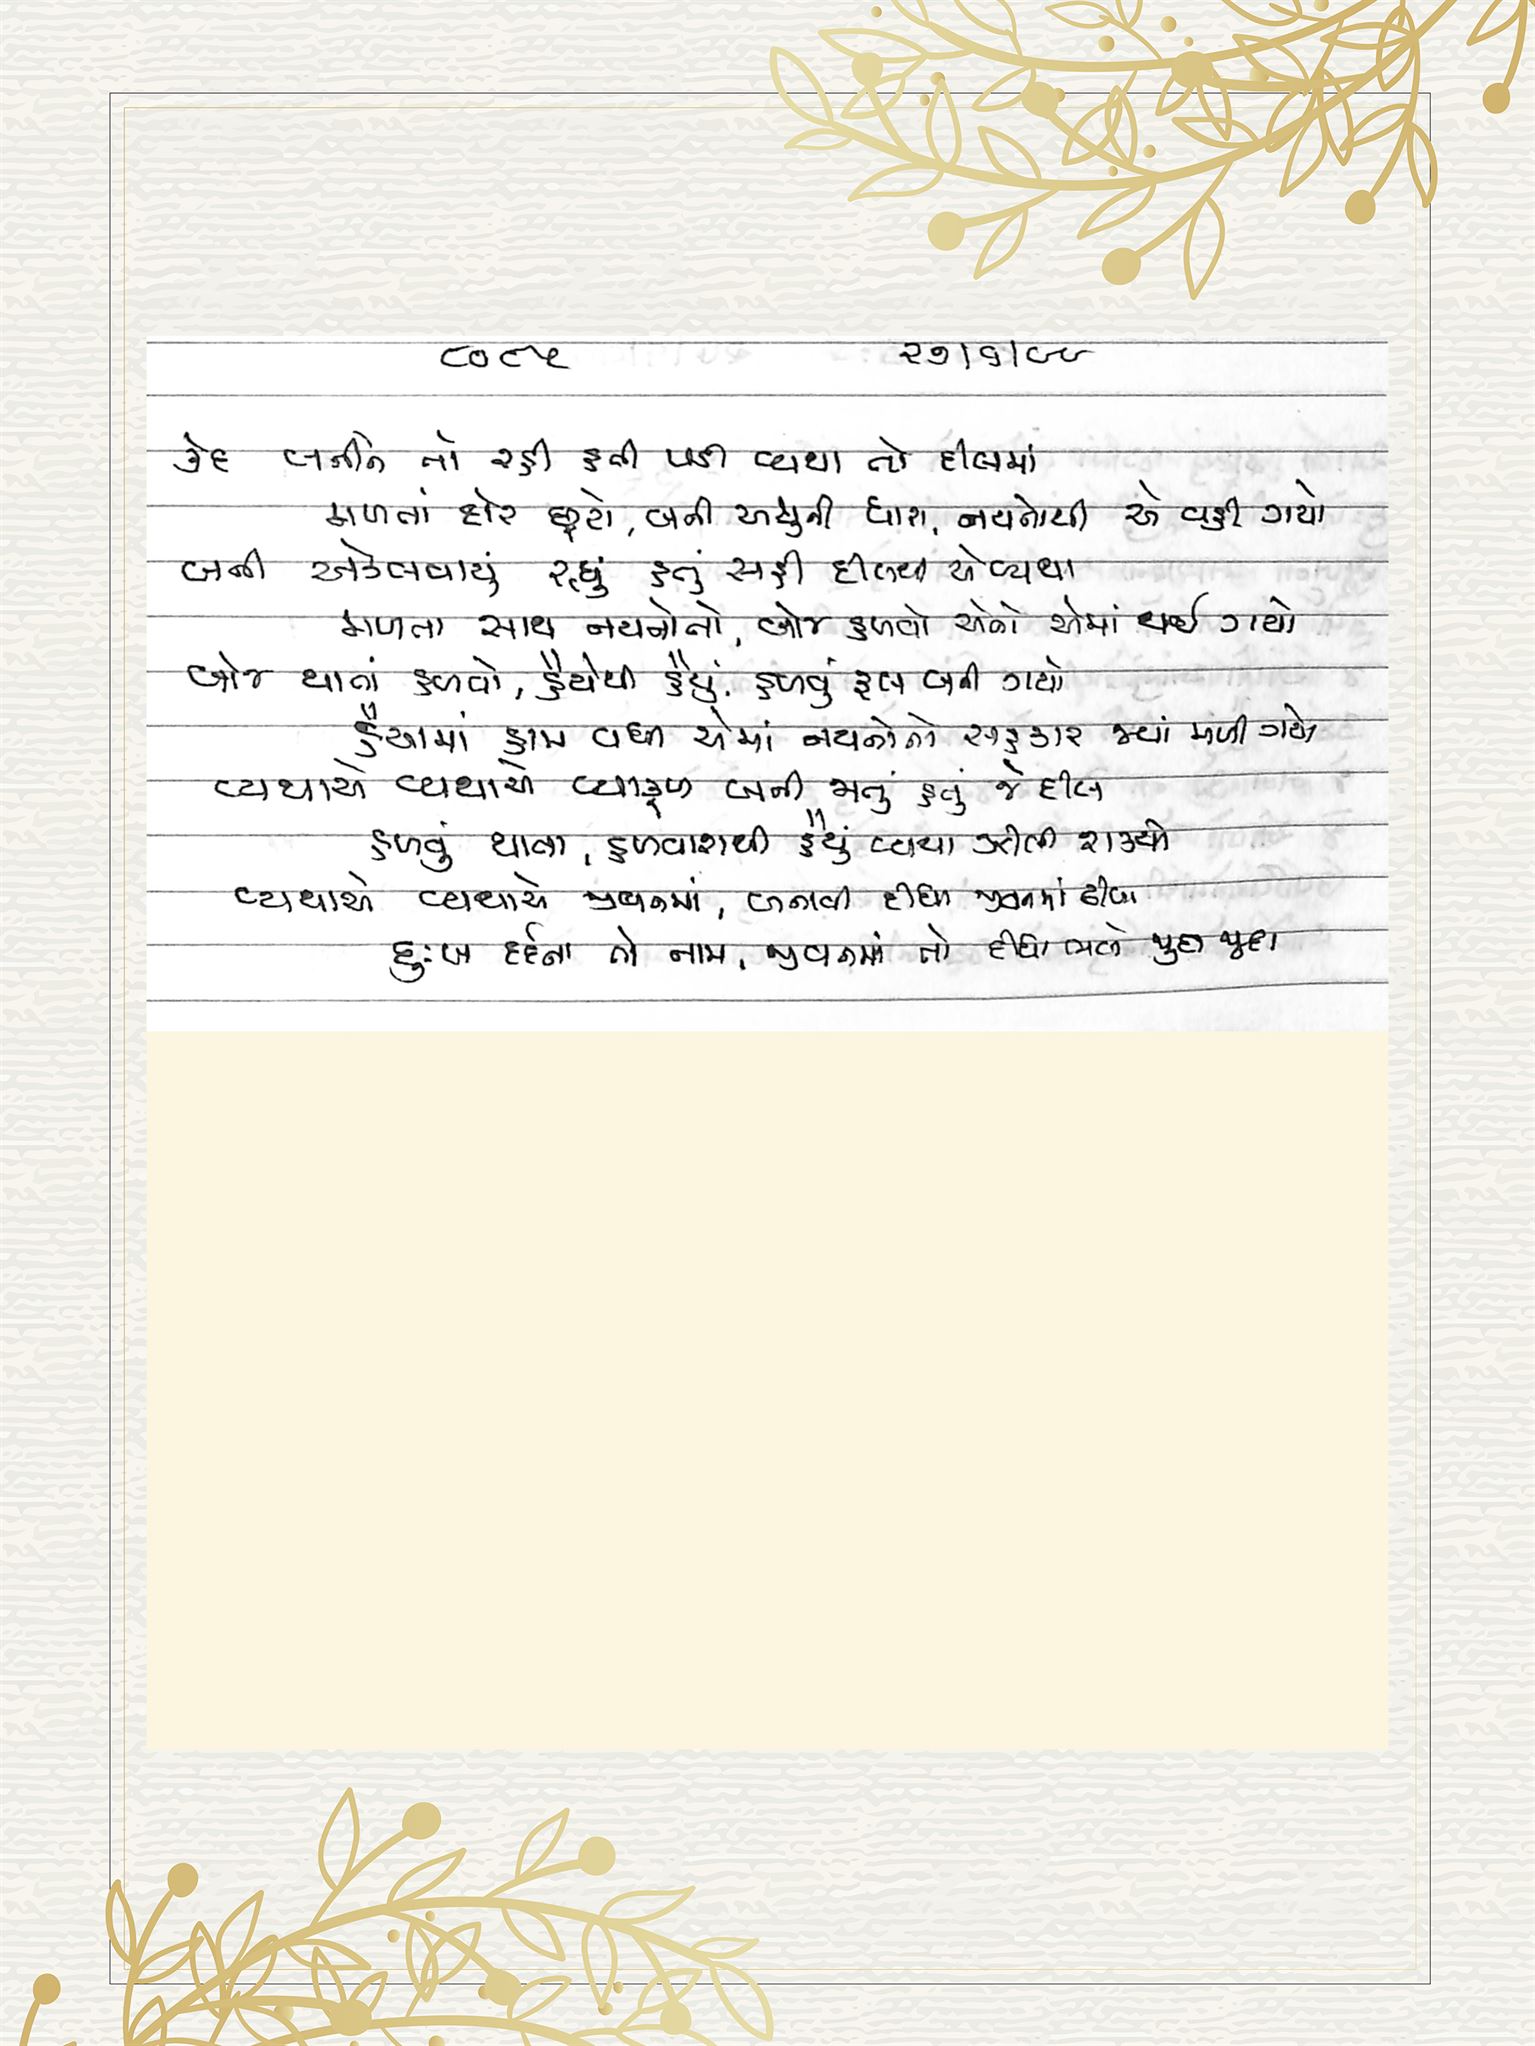 ૮૦૮૫ ૨૭/૬/૯૯
કેદ બનીને તો રહી હતી પડી વ્યથા તો દીલમાં
મળતાં દોર છૂટો, બની અશ્રુની ધારા, નયનોથી એ વહી ગયો
બની અકેલવાયું રહ્યું હતું સહી દીલથી એ વ્યથા
મળતા સાથ નયનોનો, બોજ હળવો એનો એમાં થઈ ગયો
બોજ થાતાં હળવો, હૈયેથી હૈયું, હળવું ફૂલ બની ગયો
હૈયામાં હામ વધી એમાં નયનોનો સહકાર જ્યાં મળી ગયો
વ્યથાએ વ્યથાએ વ્યાકૂળ બની જાતું હતું જે દીલ
હળવું થાતા, હળવાશથી હૈયું વ્યથા ઝીલી શક્યો
વ્યથાએ વ્યથાએ જીવનમાં, બનાવી દીધા જીવનમાં ઢીલા
દુઃખ દર્દના તો નામ, જીવનમાં તો દીધા ભલે જુદા જુદા